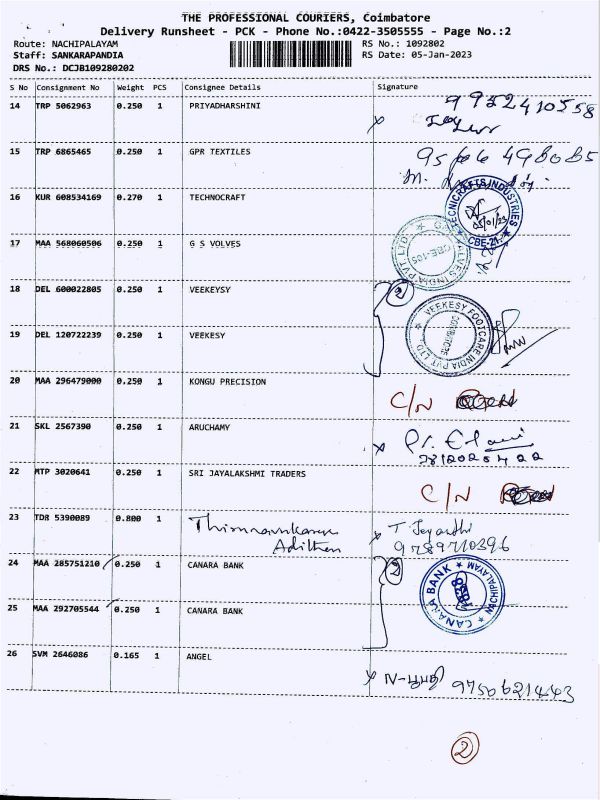 THE PROFESSIONAL COURIERS, Coimbatore
Delivery Runsheet - PCK - Phone No.:0422-3505555 - Page No.:2
Route: NACHIPALAYAM RS No.: 1092802
Staff: SANKARAPANDIA RS Date: 05-Jan-2023
DRS No.: DCJB109280202
S No Consignment No Weight PCS Consignee Details Signature
14 TRP 5062963 0.250 1 PRIYADHARSHINI 9952410558
15 TRP 6865465 0.250 1 GPR TEXTILES
16 KUR 608534169 0.270 1 TECHNOCRAFT
TECNICRAFTS INDUSTRIES
05/01/23
CBE-21
17 MAA 568060506 0.250 1 G S VOLVES
CBE-105
18 DEL 600022805 0.250 1 VEEKEYSY 2
19 DEL 120722239 0.250 1 VEEKESY
VEEKESY FOOTCARE INDIA PVT LTD
20 MAA 296479000 0.250 1 KONGU PRECISION C/N
21 SKL 2567390 0.250 1 ARUCHAMY
22 MTP 3020641 0.250 1 SRI JAYALAKSHMI TRADERS C/N
23 TDR 5390089 0.800 1 Adithen T. Jeyanthi
9789710396
24 MAA 285751210 0.250 1 CANARA BANK 2
CANARA BANK NACHIPALAYAM
25 MAA 292705544 0.250 1 CANARA BANK
26 SVM 2646086 0.165 1 ANGEL
9750621443
2